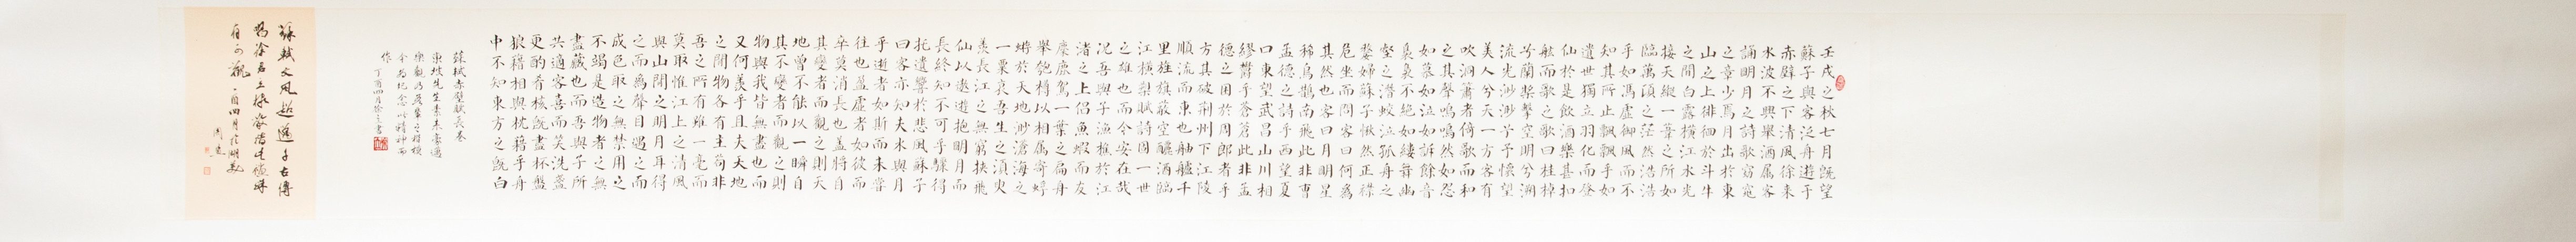 壬戌之秋七月既望
蘇子與客泛舟遊于
赤壁之下清風徐来
水波不興舉酒属客
誦明月之詩歌窈窕
之章少焉月出於東
山之上徘徊於斗牛
之間白露横江水光
接天縱一葦之所如
臨萬頃之茫然浩浩
乎如馮虚御風而不
知其所止飄飄乎如
遺世獨立羽化而登
仙於是飲酒樂甚扣
舷而歌之歌曰桂棹
兮蘭槳擊空明兮溯
流光渺渺兮予懷望
美人兮天一方客有
吹洞簫者倚歌而和
之其聲嗚嗚然如怨
如慕如泣如訴餘音
裊裊不絶如縷舞幽
壑之潜蛟泣孤舟之
嫠婦蘇子愀然正襟
危坐而問客曰何為
其然也客曰月明星
稀烏鵲南飛此非曹
孟德之詩乎西望夏
口東望武昌山川相
繆鬱乎蒼蒼此非孟
德之困於周郎者乎
方其破荆州下江陵
順流而東也舳艫千
里旌旗蔽空釃酒臨
江横槊賦詩固一世
之雄也而今安在哉
况吾與子漁樵於江
渚之上侣魚蝦而友
麋鹿駕一葉之扁舟
舉匏樽以相属寄蜉
蝣於天地渺滄海之
一粟哀吾生之須臾
羨長江之無窮挾飛
仙以遨遊抱明月而
長終知不可乎驟得
托遺響於悲風蘇子
曰客亦知夫水與月
乎逝者如斯而未嘗
往也盈虚者如彼而
卒莫消長也盖將自
其變者而觀之則天
地曾不能以一瞬自
其不變者而觀之則
物與我皆無盡也而
又何羨乎且夫天地
之間物各有主苟非
吾之所有雖一毫而
莫取惟江上之清風
與山間之明月耳得
之而為聲目遇之而
成色取之無禁用之
不竭是造物者之無
盡藏也而吾與子所
共適客喜而笑洗盞
更酌肴核既盡杯盤
狼藉相與枕藉乎舟
中不知東方之既白
蘇軾赤壁賦長卷
東坡先生素来豪邁
樂觀乃之楷模
今為紀念以精神而
作 丁酉四月書
蘇軾文風超逸千古傳